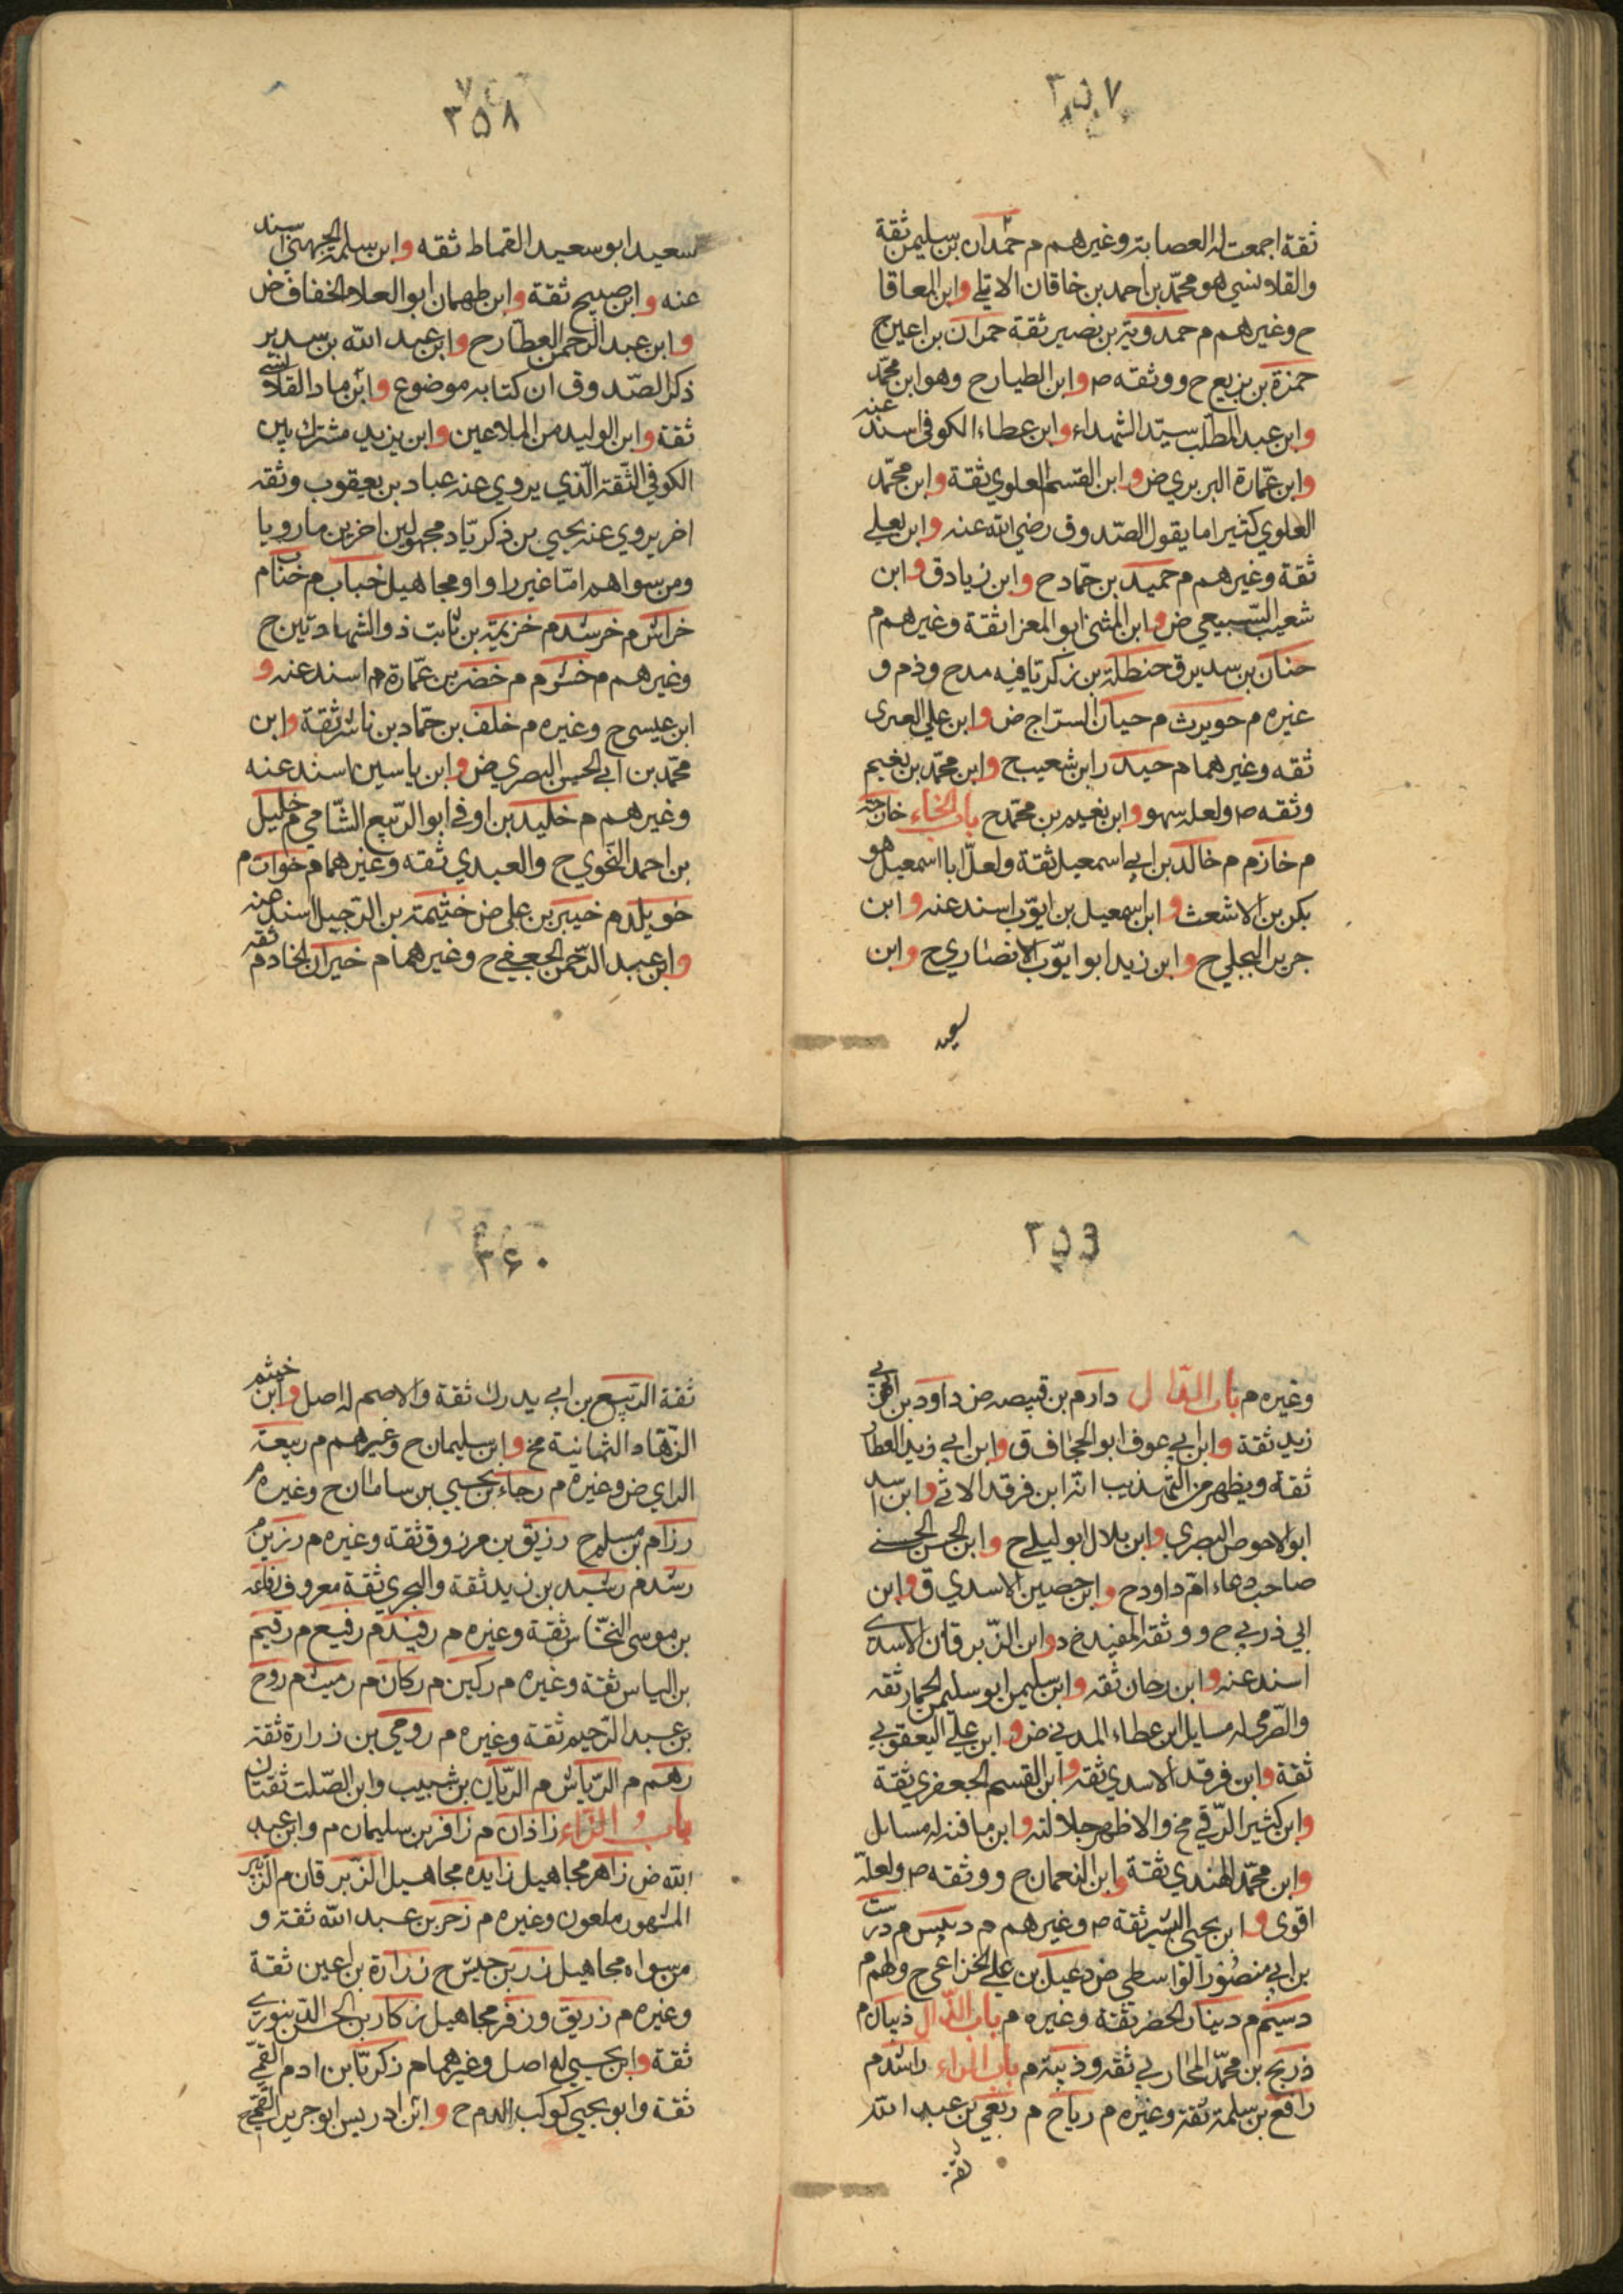 ٣٥٧
ثقة اجمعت له العصابة وغيرهم م حمدان بن سليمن ثقة
والقلانسي هو محمد بن احمد بن خاقان الاتي وابن المعافا
ح وغيرهم م حمدوية بن نصير ثقة حمران بن اعين ح
حمزة بن بزيع ح ووثقه م وابن الطيار ح وهو ابن محمد
وابن عبد المطلب سيد الشهداء وابن عطاء الكوفي اسند عنه
وابن عمارة البربري ض وابن القسم العلوي ثقة وابن محمد
العلوي كثيرا ما يقول الصدوق رضي الله عنه وابن يعلى
ثقة وغيرهم م حميد بن حماد ح وابن زياد ق وابن
شعيب السبيعي ض وابن المثنى ابو المعزا ثقة وغيرهم م
حنان بن سدير ق حنظلة بن زكريا فيه مدح وذم و
غيره م حويرث م حيان السراج ض وابن علي العبرى
ثقه وغيرهما م حيدر ابن شعيب ح وابن محمد بن نعيم
وثقه م ولعله سهو وابن نعيم بن محمد ح باب الخاء خارجة
م خازم م خالد بن ابي اسمعيل ثقة ولعل ابا اسمعيل هو
بكر بن الاشعث وابن اسمعيل بن ايوب اسند عنه وابن
جرير البجلي ح وابن زيد ابو ايوب الانصاري ح وابن
سعيد
٣٥٨
سعيد ابو سعيد القماط ثقه وابن سلمة الجهني اسند
عنه وابن صبيح ثقة وابن طهمان ابو العلا الخفاف ض
وابن عبد الرحمن العطار ح وابن عبد الله بن سدير
ذكر الصدوق ان كتابه موضوع وابن ماد القلانسي
ثقة وابن الوليد من الملاعين وابن يزيد مشترك بين
الكوفي الثقة الذي يروي عنه عباد بن يعقوب وثقه
اخر يروي عنه يحيي بن ذكريا د مجهولين اخرين ما رويا
ومن سواهم اما غير راو او مجاهيل خباب م خناب م
خراش م خرشد م خزيمة بن ثابت ذو الشهادتين ح
وغيرهم م خشرم م خضر بن عمارة م اسند عنه و
ابن عيسى ح وغيره م خلف بن حماد بن ناشر ثقة وابن
محمد بن ابي الحسن البصري ض وابن ياسين اسند عنه
وغيرهم م خليد بن اوفى ابو الربيع الشامي م خليل
بن احمد النحوي ح والعبدي ثقه وغيرهما م خوات م
خويلد م خيبر بن علي ض خثيمة بن الرحيل اسند عنه
وابن عبد الرحمن الجعفي ح وغيرهما م خيران الخادم ثقه
٣٥٩
وغيره م باب الدال دارم بن قبيصه ض داود بن ابي
زيد ثقة وابن ابي عوف ابو الجحاف ق وابن ابي زيد العطار
ثقة ويظهر من التهذيب انه ابن فرقد الاتي وابن اسد
ابو الاحوص البصري وابن بلال ابو ليلى ح وابن الحسن الحسني
صاحب دعاء ام داود ح وابن حصين الاسدي ق وابن
ابي زربي ح ووثقه المفيد خ د وابن الزبرقان الاسدى
اسند عنه وابن سرحان ثقه وابن سليمن ابو سليمن الحمار ثقه
والصرمي له مسايل ابن عطاء المدني ض وابن علي اليعقوبي
ثقة وابن فرقد الاسدي ثقه وابن القسم الجعفري ثقة
وابن كثير الرقي مخ والاظهر جلالته وابن مافنه له مسائل
وابن محمد الهندي ثقة وابن النعمان ح ووثقه م ولعله
اقوى وابن يحيى البشير ثقة م وغيرهم م دبيس م درست
بن ابي منصور الواسطي ض دعبل بن علي الخزاعي ح ولهم م
دسيم م دينار الخضر ثقة وغيره م باب الذال ذبيان م
ذريح بن محمد المحاربي ثقه وذيبة م باب الراء راشد م
رافع بن سلمة ثقة وغيره م رباح م ربعي بن عبد الله
ثقة
٣٦٠
ثقة الربيع بن ابي يدرك ثقة والاصم له اصل وابن خثيم
الزهاد الثمانية مخ وابن سليمان ح وغيرهم م ربيعة
الراي ض وغيره م رجاء بن يحيى بن سامان ح وغيره م
رزام بن مسلم ح رزيق بن مرزوق ثقة وغيره م رزين م
رشد م رشيد بن زيد ثقة والهجري ثقة معروف رفاعه
بن موسى النخاس ثقة وغيره م رفيد م رفيع م رقيم
بن الياس ثقة وغيره م ركين م ركان م رميث م روح
بن عبد الرحيم ثقة وغيره م رومي بن زرارة ثقة
رهم م الرياش م الريان بن شبيب وابن الصلت ثقتان
باب الزاء زاذان م زافر بن سليمان م وابن عبد
الله ض زاهر مجاهيل زايده مجاهيل الزبرقان م الزبير
المشهور ملعون وغيره م زحر بن عبد الله ثقة و
من سواه مجاهيل زر بن حبيش ح زرارة بن اعين ثقة
وغيره م زريق وزفر مجاهيل زكار بن الحسن الدينورى
ثقة وابن يحيى له اصل وغيرهما م زكريا بن ادم القمي
ثقة وابو يحيى كوكب الدم ح وابن ادريس ابو جرير القمي ح